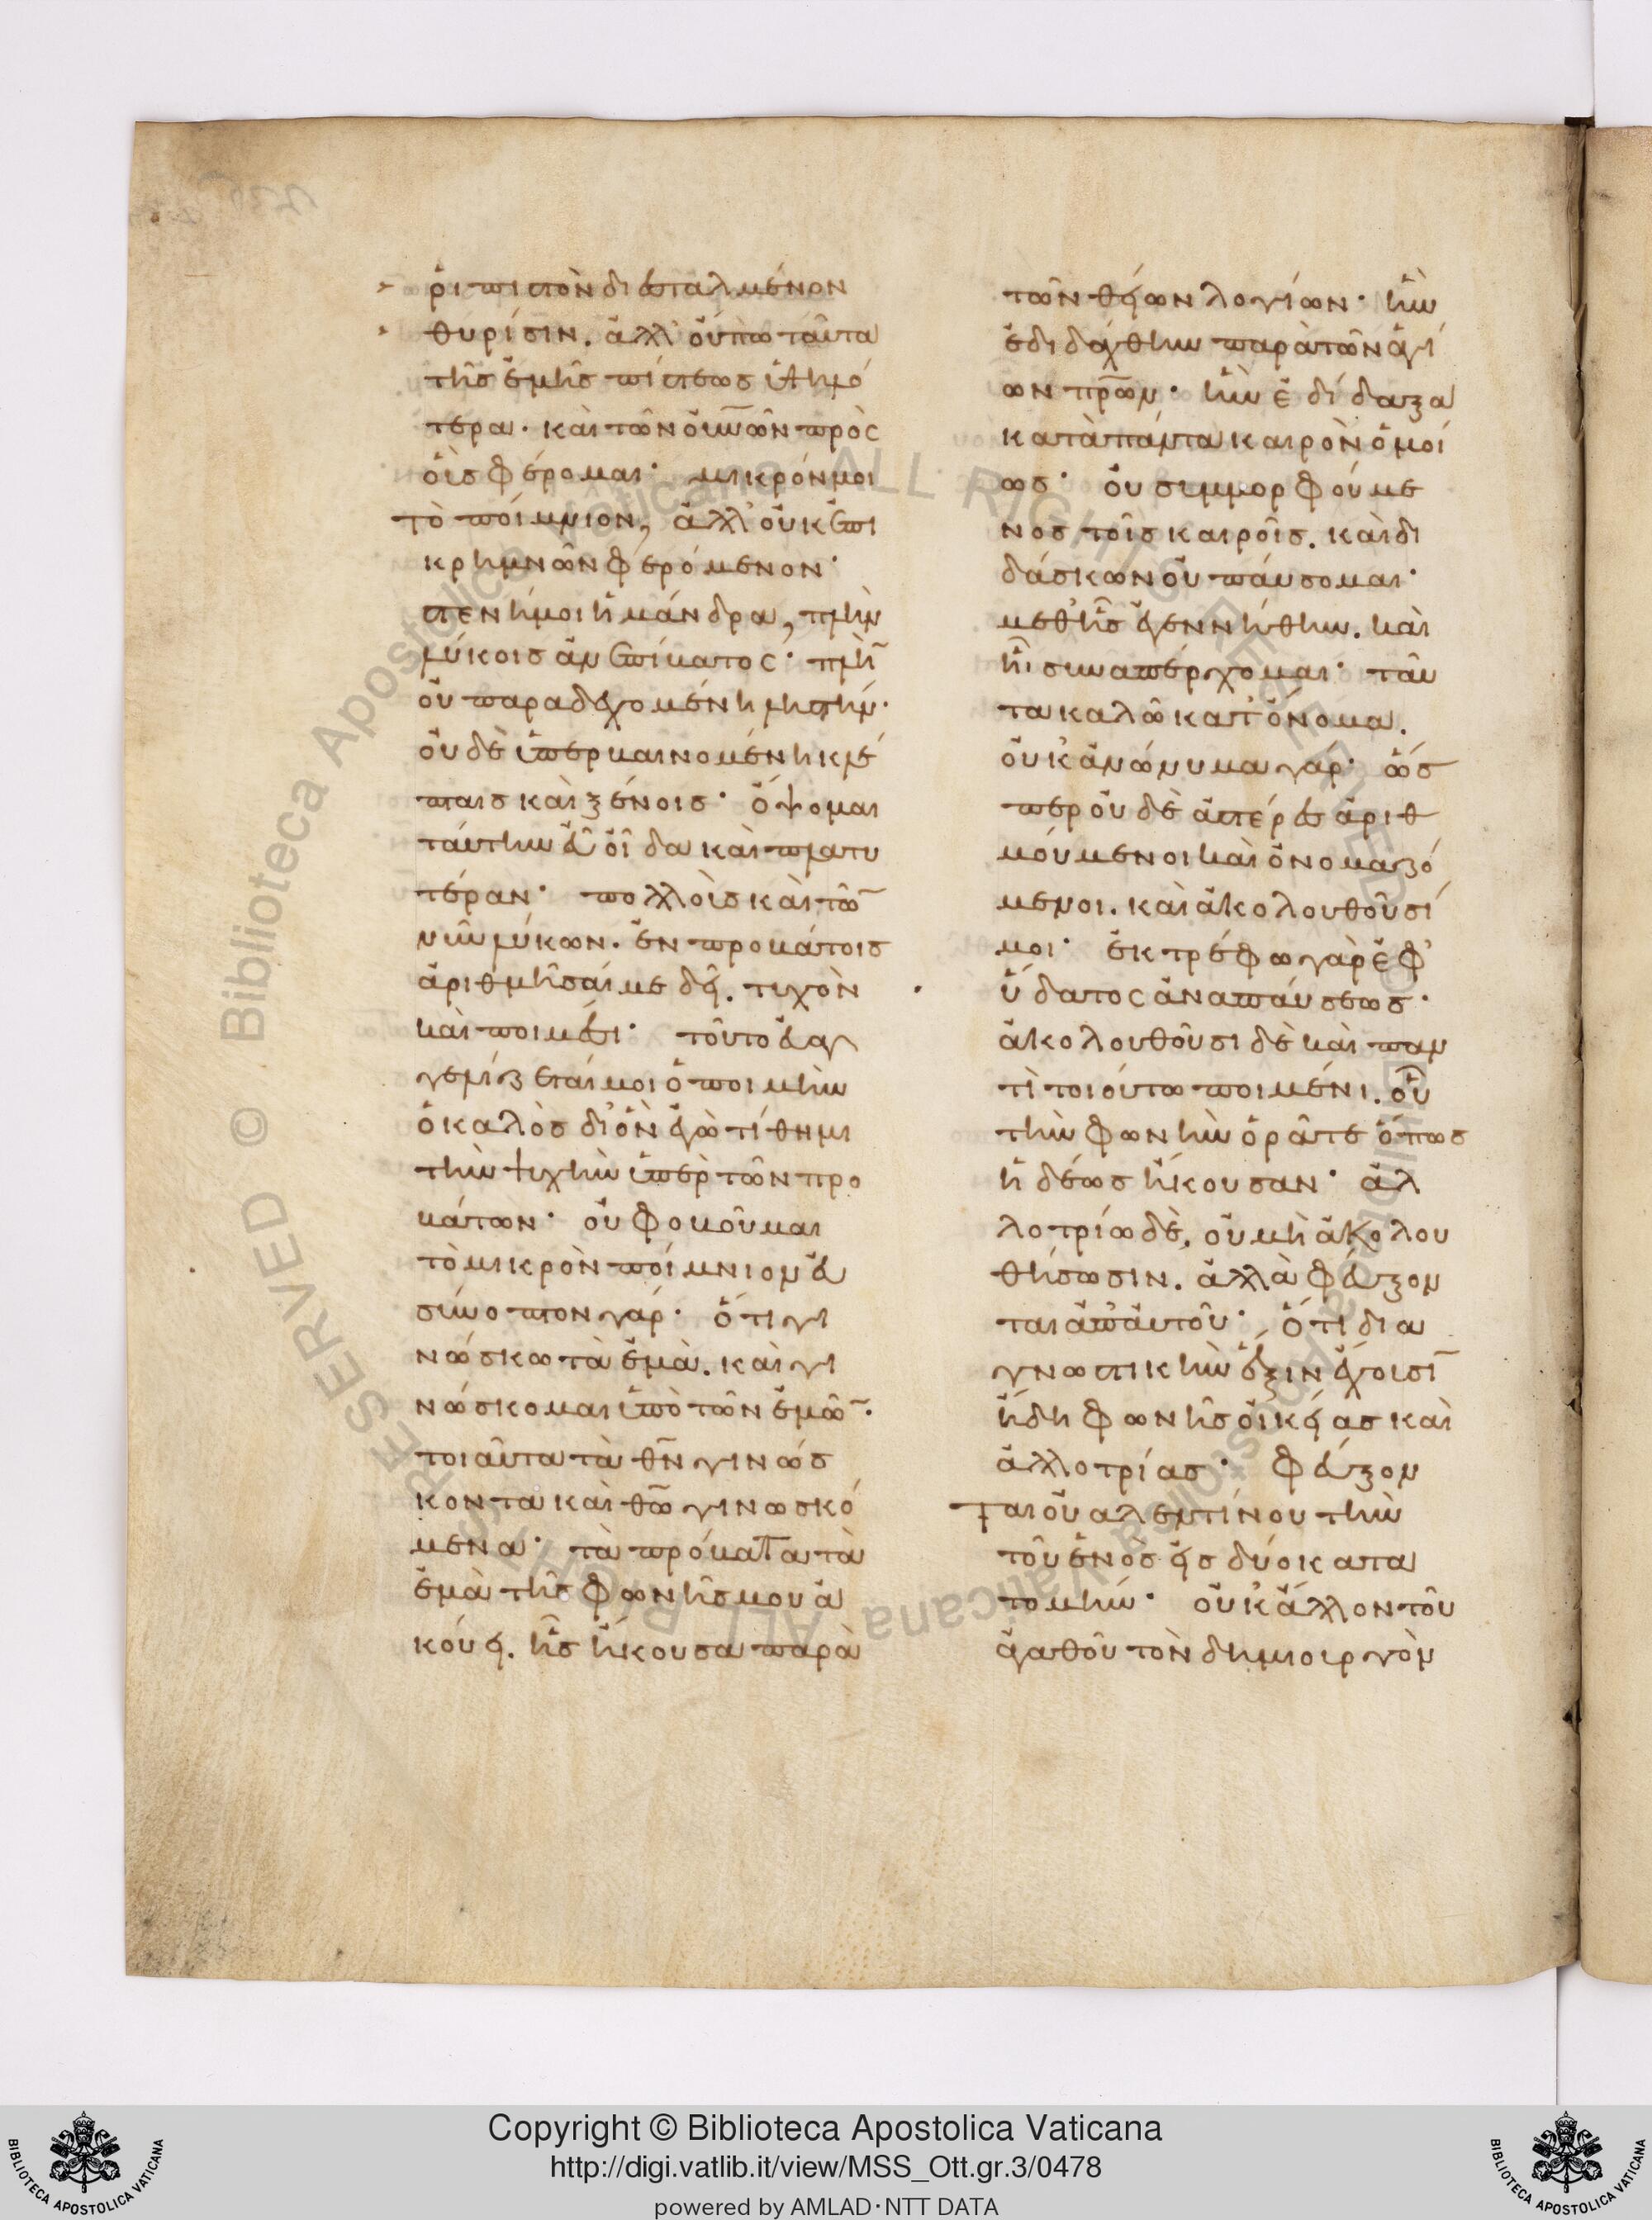 ῥιπιστὸν διεσταλμένον
θυρίσιν. ἀλλ' οὔπω ταῦτα
τῆς ἐμῆς πίστεως ὑψημό
τερα. καὶ τῶν οὐνῶν πρὸς
οἷς φέρομαι· μικρόν μοι
τὸ ποίμνιον, ἀλλ' οὐκ ἐπι
κρημνῶν φερόμενον·
στενή μοι ἡ μάνδρα, πλὴν
λύκοις ἀνεπίβατος· πλὴ
οὐ παραδεχομένη ληστήν·
οὐδὲ ὑπερβαινομένη κλέ
πταις καὶ ξένοις· ὄψομαι
ταύτην εὖ οἶδα καὶ πλατυ
τέραν· πολλοῖς καὶ τῶ
νῦν λύκων. ἐν προβάτοις
ἀριθμῆσαί με δεῖ. τυχὸν
καὶ ποιμέσι· τοῦτο εὐαγ
γελίζεταί μοι ὁ ποιμὴν
ὁ καλὸς δι' ὃν ἐγὼ τίθημι
τὴν ψυχὴν ὑπὲρ τῶν προ
βάτων· οὐ φοβοῦμαι
τὸ μικρὸν ποίμνιον εὐ
σύνοπτον γάρ· ὅτι γι
νώσκω τὰ ἐμὰ. καὶ γι
νώσκομαι ὑπὸ τῶν ἐμῶ.
τοιαῦτα τὰ θν γινώσ
κοντα καὶ θω γινωσκό
μενα· τὰ πρόβατα τὰ
ἐμὰ τῆς φωνῆς μου ἀ
κούει. ἧς ἤκουσα παρὰ
τῶν θείων λογίων· ἣν
ἐδιδάχθην παρὰ τῶν ἁγί
ων πρων· ἣν ἐδίδαξα
κατὰ πάντα καιρὸν ὁμοί
ως· οὐ συμμορφούμε
νος τοῖς καιροῖς. καὶ δι
δάσκων οὐ παύσομαι·
μεθ' ἧς ἐγεννήθην. καὶ
ᾗ συναπέρχομαι· ταῦ
τα καλῶ κατ' ὄνομα.
οὐκ ἀνώνυμα γάρ· ὥσ
περ οὐδὲ ἀστέρες ἀριθ
μούμενοι καὶ ὀνομαζό
μενοι. καὶ ἀκολουθοῦσί
μοι· ἐκτρέφω γὰρ ἐφ'
ὕδατος ἀναπαύσεως·
ἀκολουθοῦσι δὲ καὶ παν
τὶ τοιούτω ποιμένι. οὗ
τὴν φωνὴν ὁρᾶτε ὅπως
ἡδέως ἤκουσαν· ἀλ
λοτρίω δὲ, οὐ μὴ ἀκολου
θήσωσιν. ἀλλὰ φεύξον
ται ἀπ' αὐτοῦ· ὅτι δια
γνωστικὴν ἕξιν ἔχοισι
ἤδη φωνῆς οἰκείας καὶ
ἀλλοτρίας· φεύξον
ται οὐαλεντίνου τὴν
τοῦ ἑνὸς εἰς δύο κατα
τομήν· οὐκ ἄλλον τοῦ
ἀγαθοῦ τὸν δημιουργὸν
Copyright © Biblioteca Apostolica Vaticana
http://digi.vatlib.it/view/MSS_Ott.gr.3/0478
powered by AMLAD·NTT DATA